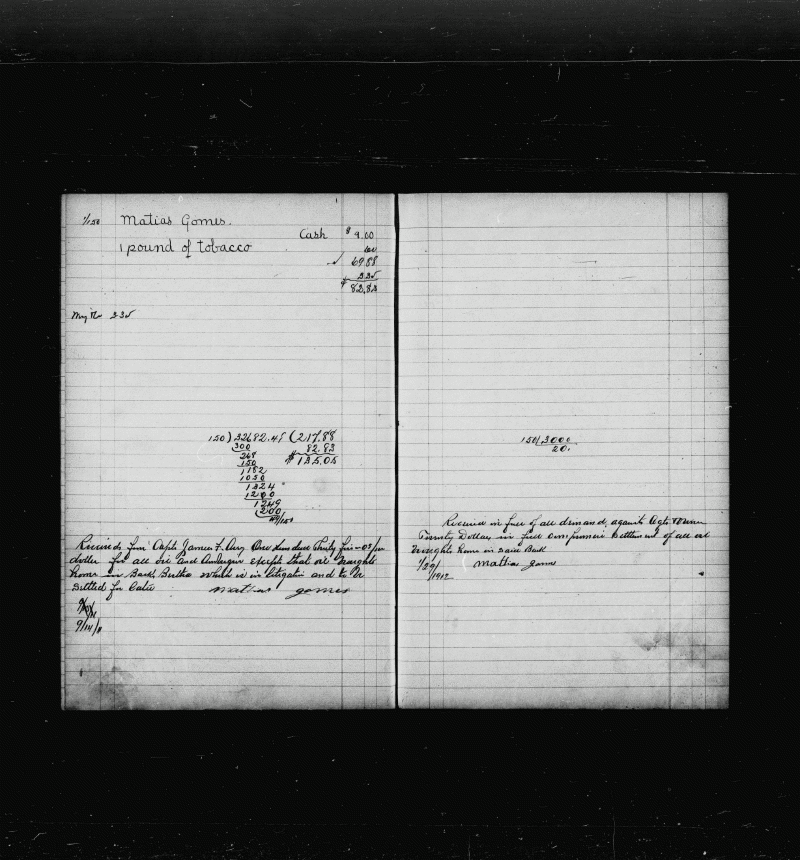 1/150 Matias Gomes.
Cash $ 9.00
1 pound of tobacco
✓ 69.88
335
$ 82.83
My No 335
150)32682.49(217.88
300 82.83
268 $ 135.05
150
1182
1050
1324
1200
1249
1200
49/150
Received from Capt James F. Avery One Hundred Thirty five 05/100
dollar for all oil and Ambergris except that oil brought
home in Bark Bertha which is in litigation and to be
settled for later
Matias Gomes
9/14/11
150/3000
20.
Received in full of all demand, against Agts + Owners
Twenty Dollars in full compromise settlement of all oil
brought home in said Bark
1/29/1912 Matias Gomes